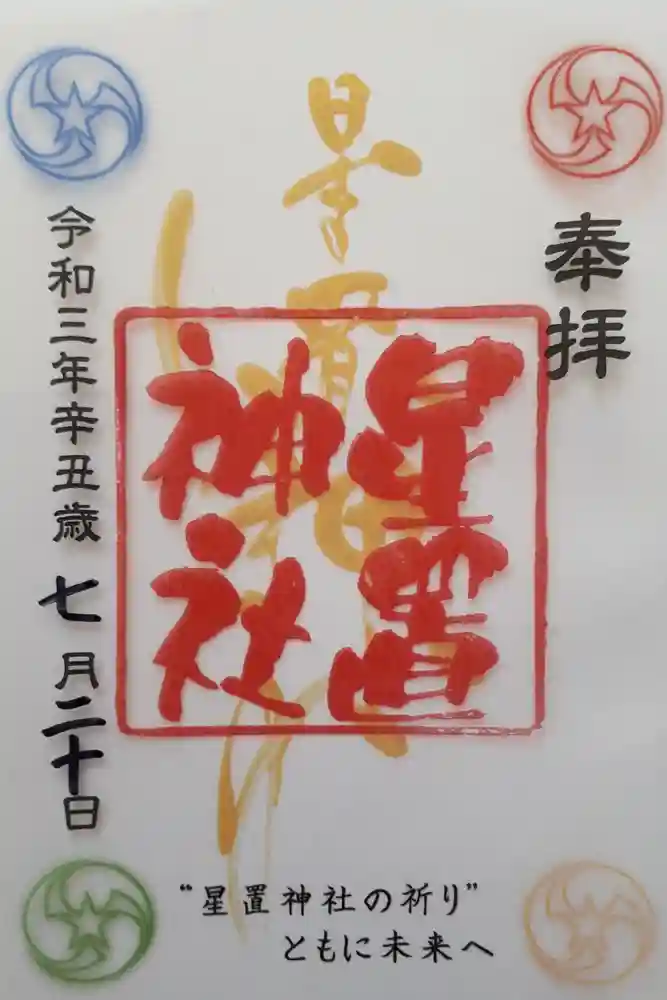 奉拝
星置神社
星置
神社
令和三年辛丑歳 七月二十日
“星置神社の祈り”
ともに未来へ